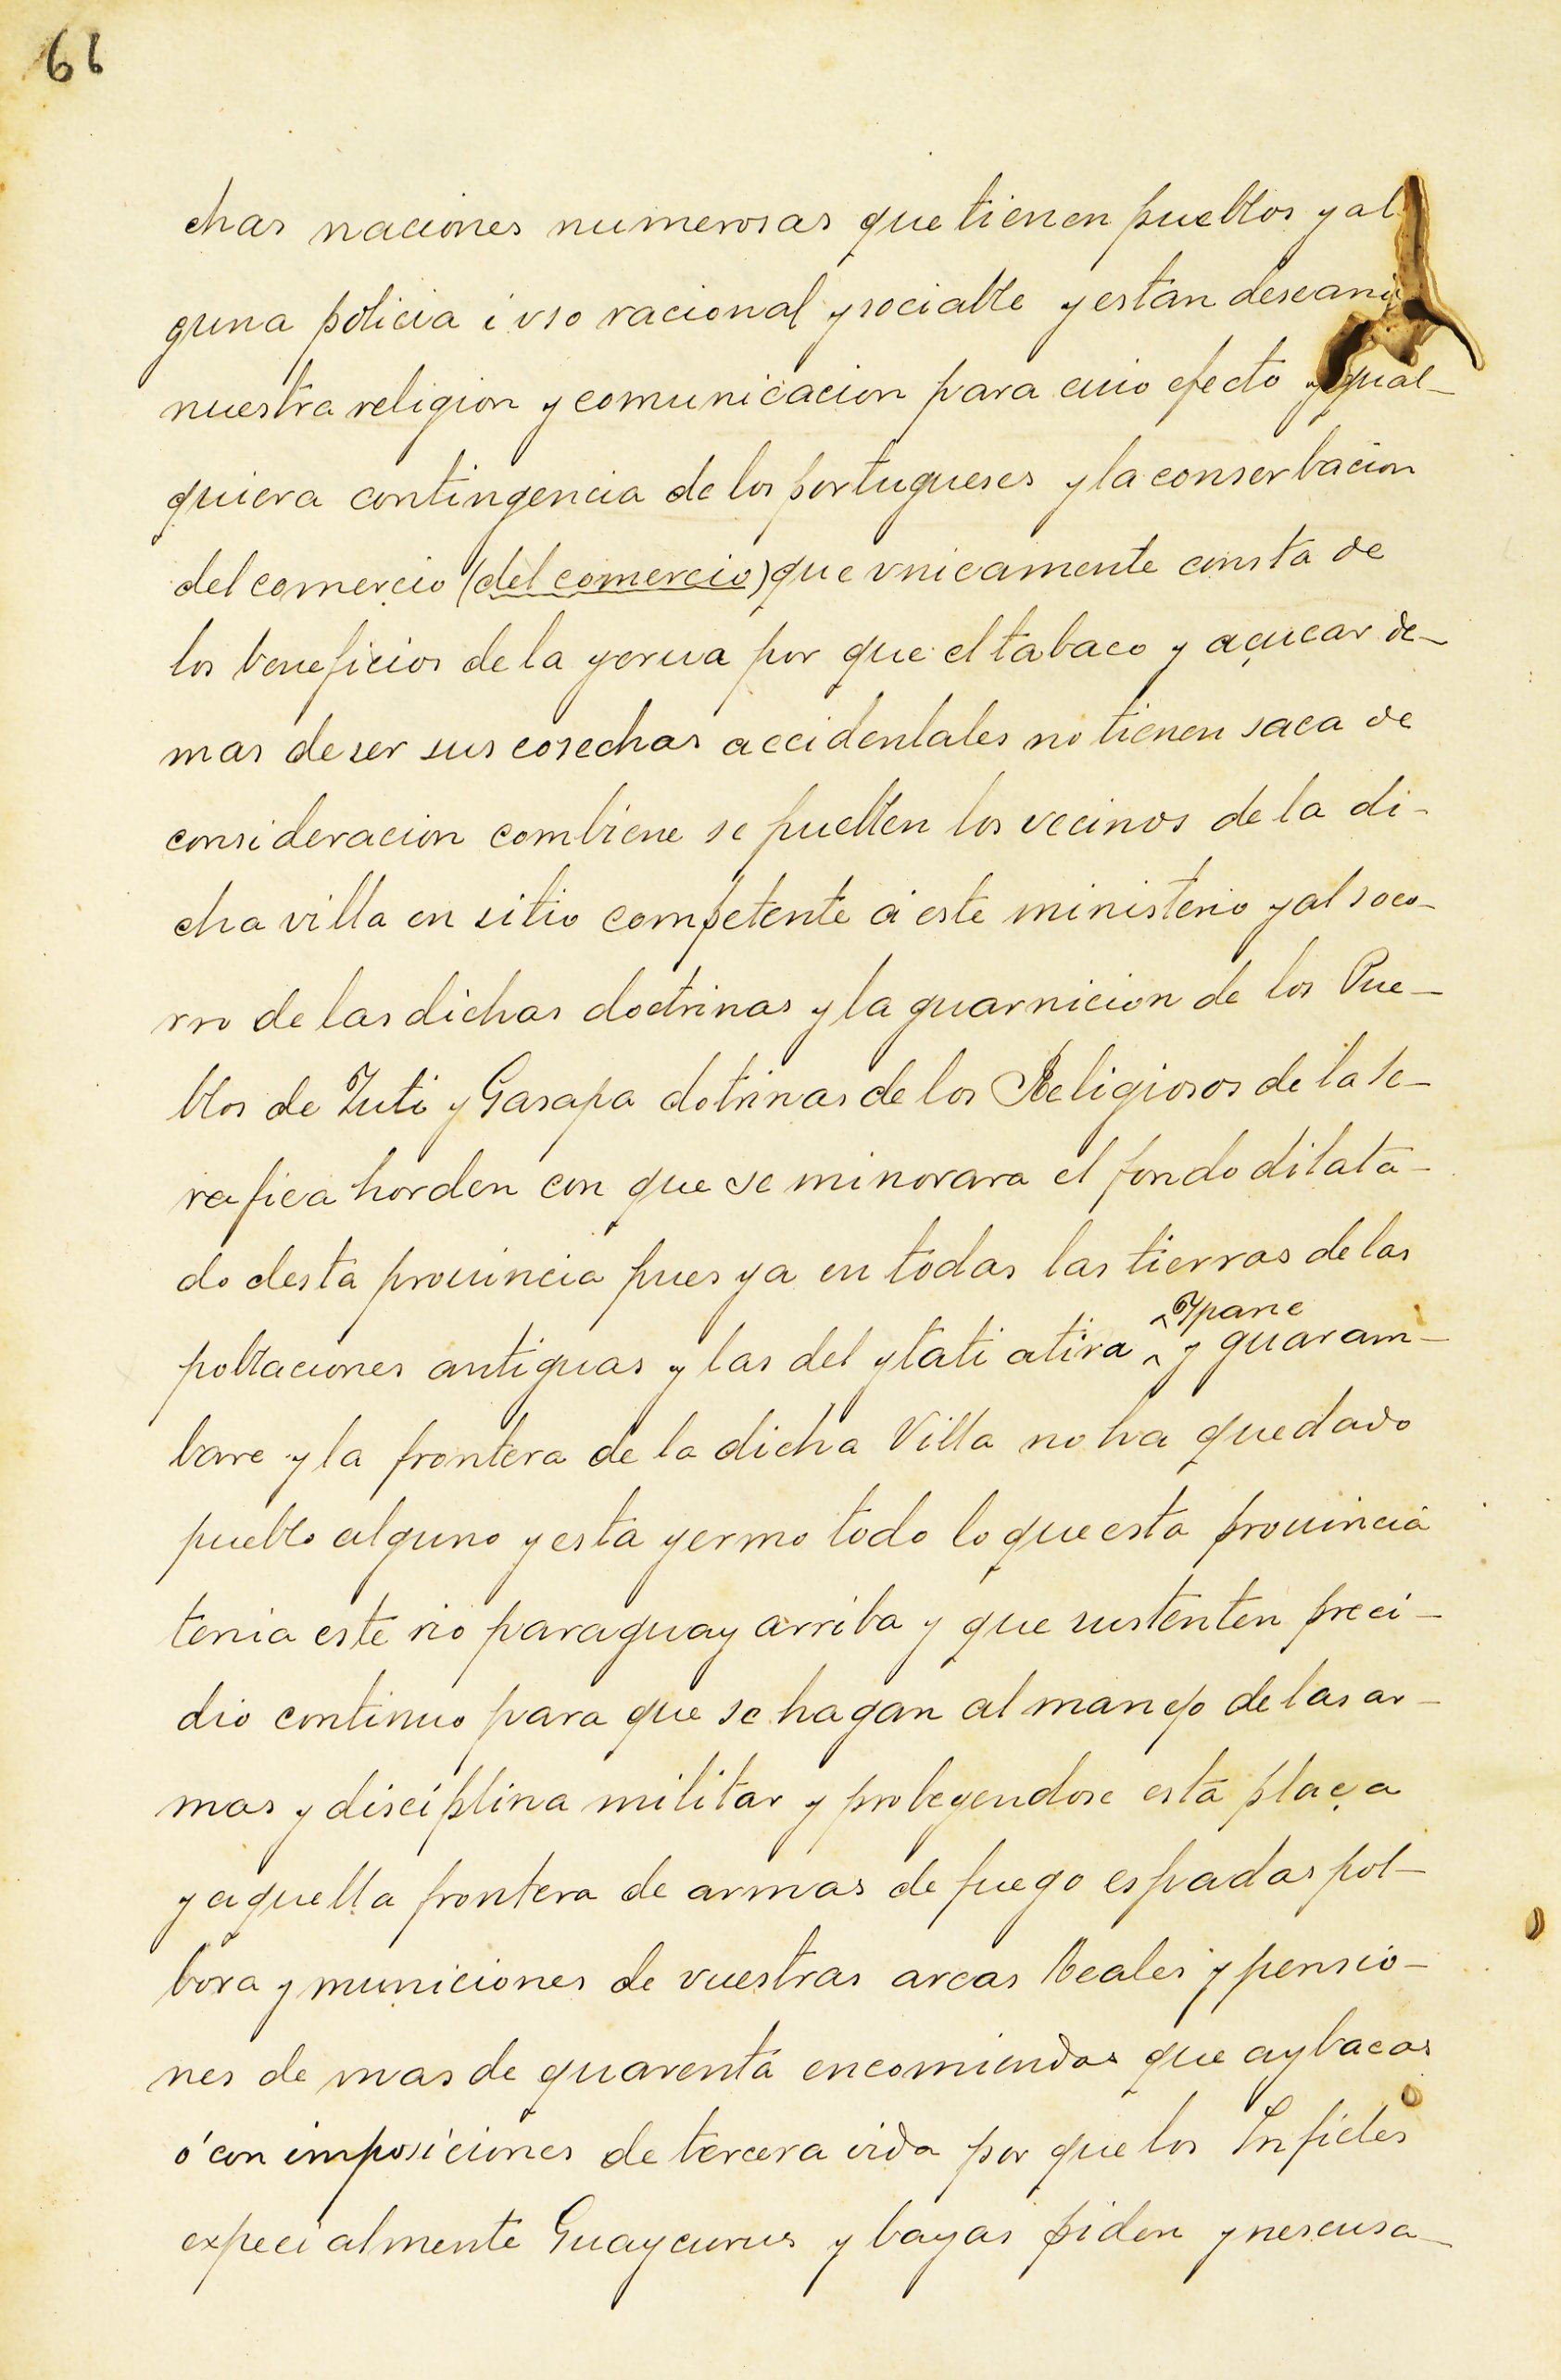 66
chas naciones numerosas que tienen pueblos y al
guna policia i vso racional y sociable y estan deseando
nuestra religion y comunicacion para cuio efecto y qual-
quiera contingencia de los portugueses y la conserbacion
del comercio (del comercio) que vnicamente consta de
los beneficios de la yerua por que el tabaco y açucar de-
mas de ser sus cosechas accidentales no tienen saca de
consideracion combiene se pueblen los vecinos de la di-
cha villa en sitio competente á este ministerio y al soco-
rro de las dichas doctrinas y la guarnicion de los Pue-
blos de Yuti y Casapa dotrinas de los Religiosos de la se-
rafica horden con que se minorara el fondo dilata-
do desta prouincia pues ya en todas las tierras de las
poblaciones antiguas y las del ytati atira ^Ypane y guaram-
bare y la frontera de la dicha Villa no ha quedado
pueblo alguno y esta yermo todo lo que esta prouincia
tenia este rio paraguay arriba y que sustenten preci-
dio continuo para que se hagan al manejo de las ar-
mas y disciplina militar y probeyendose esta plaça
y aquella frontera de armas de fuego espadas pol-
bora y municiones de vuestras arcas Reales y pensio-
nes de mas de quarenta encomiendas que ay bacas
ó con imposiciones de tercera vida por que los Infieles
expecialmente Guaycurus y bayas piden ynescusa-